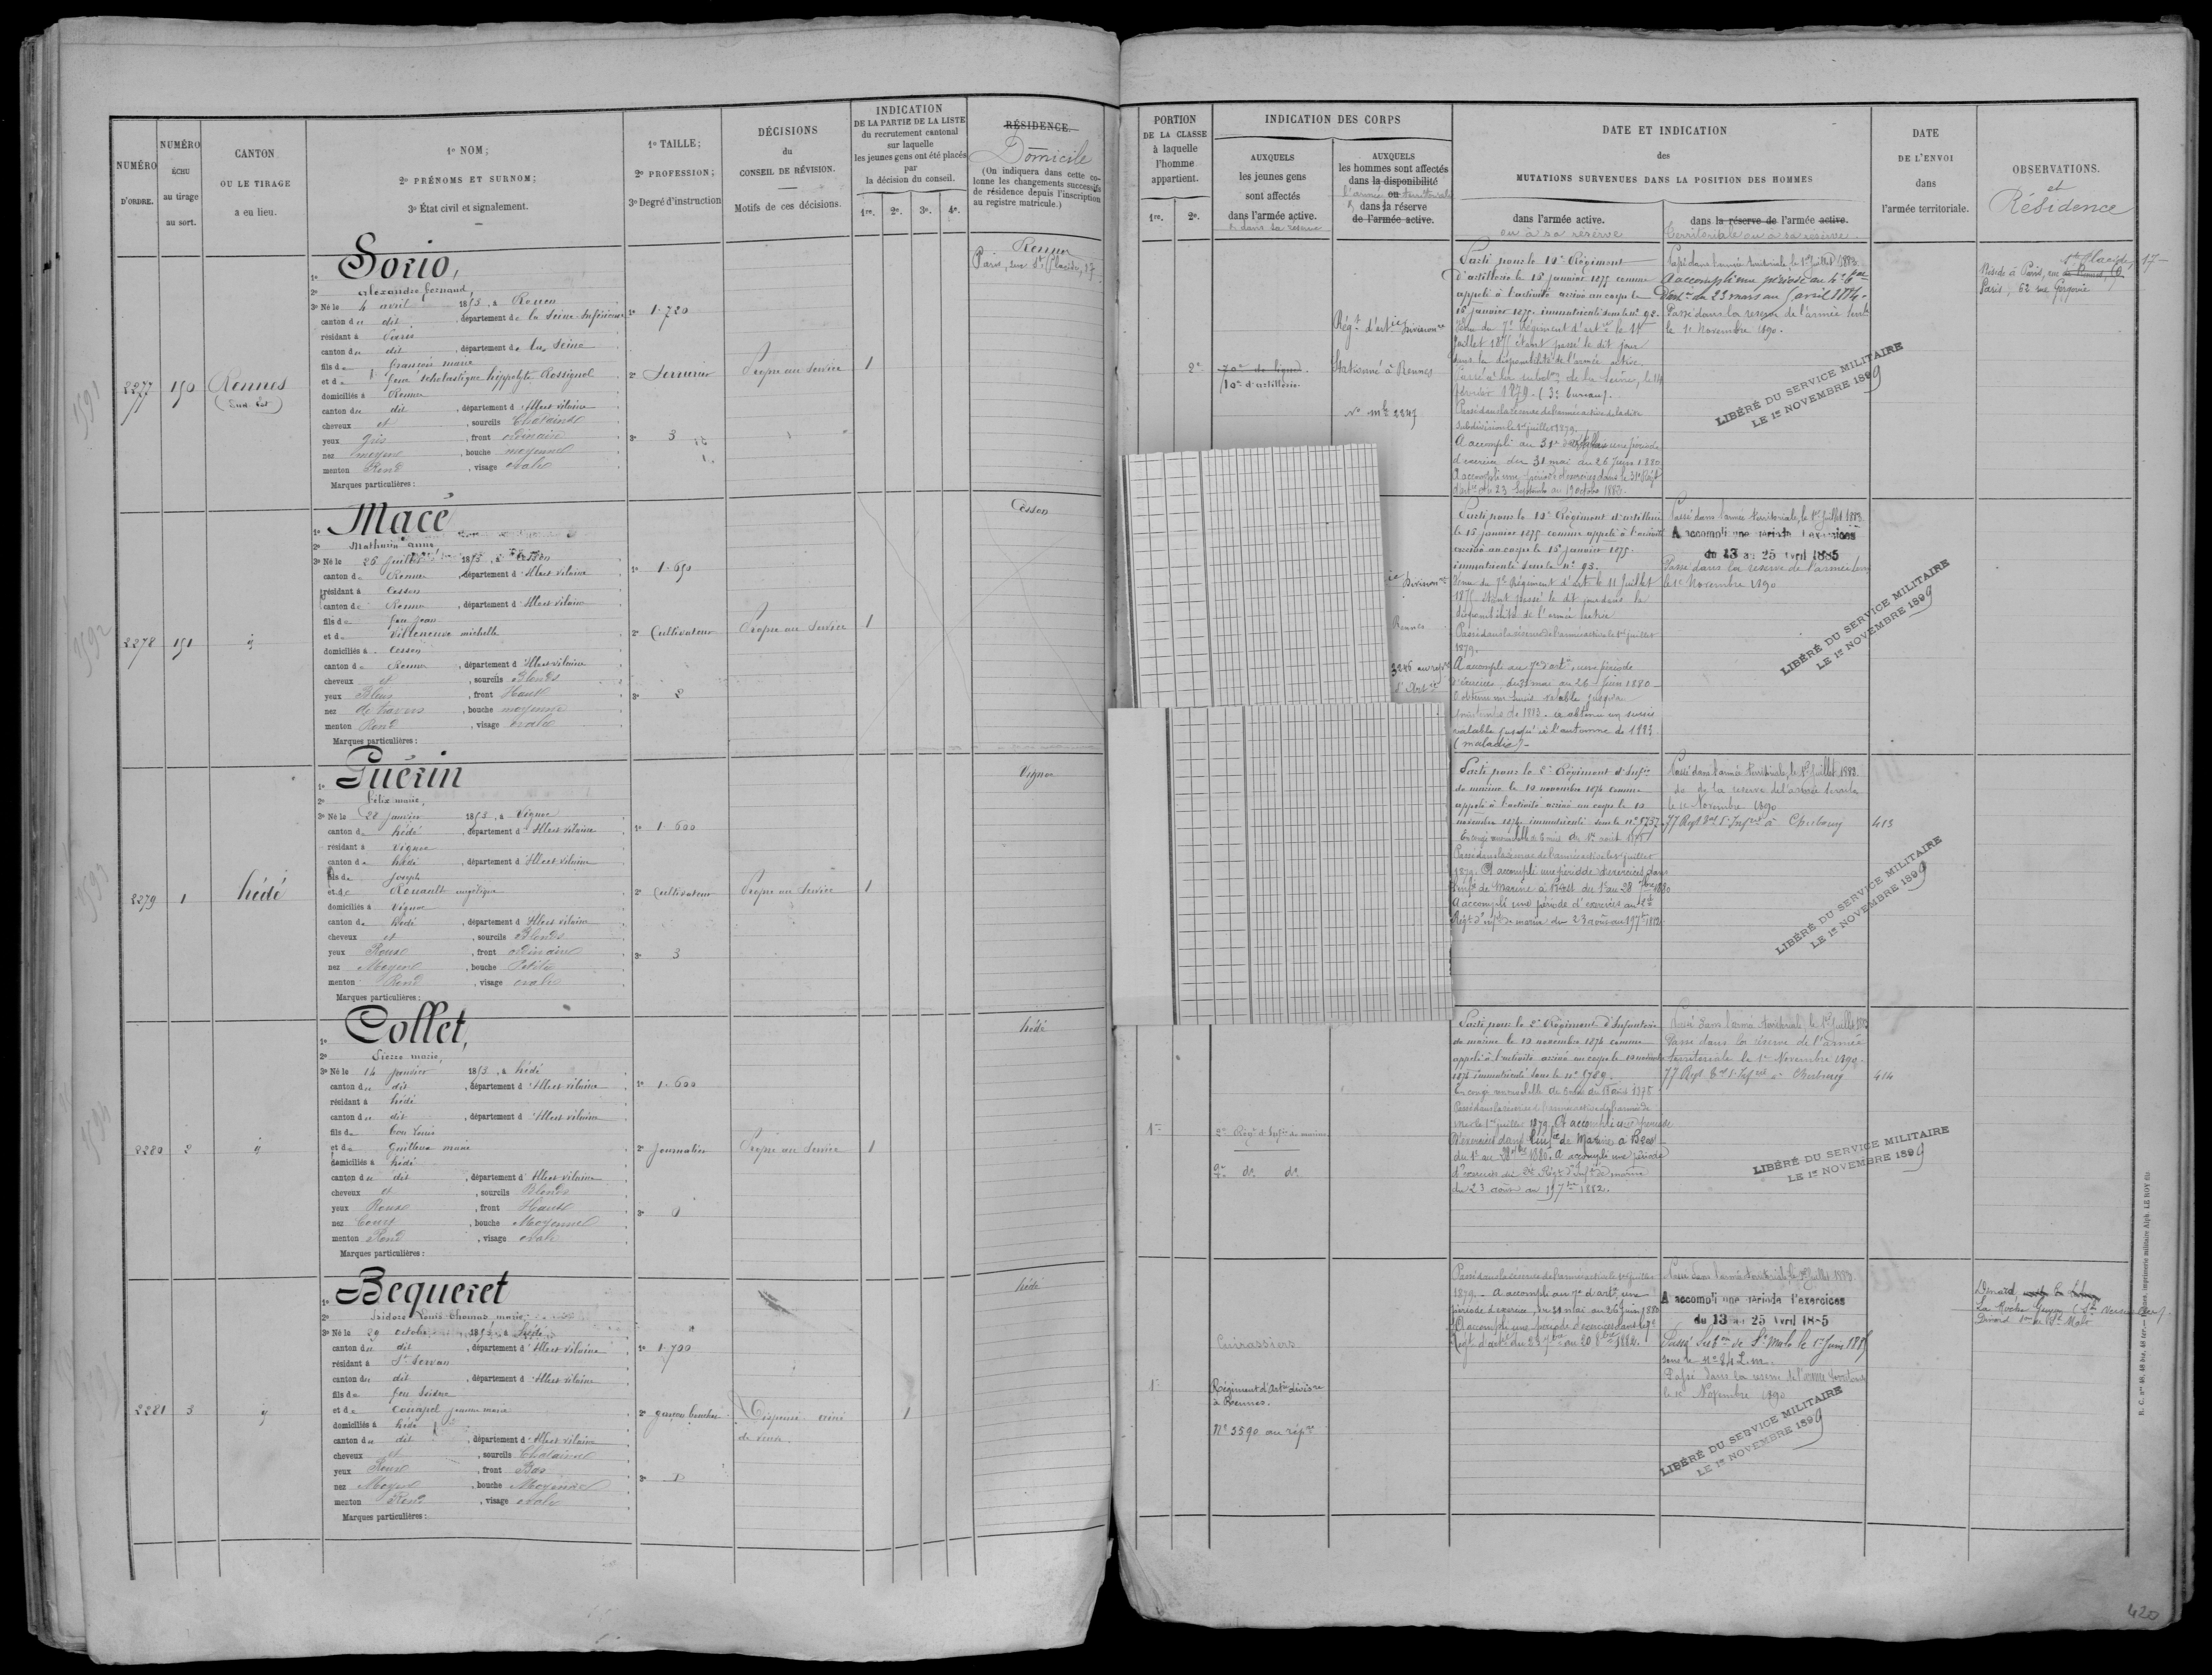 NUMÉRO
D'ORDRE.
NUMÉRO
ÉCHU
au tirage
au sort.
CANTON
OU LE TIRAGE
a eu lieu.
1º NOM;
2º PRÉNOMS ET SURNOM;
3º État civil et signalement.
1º TAILLE;
2º PROFESSION;
3º Degré d'instruction
DÉCISIONS
du
CONSEIL DE RÉVISION.
Motifs de ces décisions.
INDICATION
DE LA PARTIE DE LA LISTE
du recrutement cantonal
sur laquelle
les jeunes gens ont été placés
par
la décision du conseil.
1re. 2e. 3e. 4e.
RÉSIDENCE.
Domicile
(On indiquera dans cette co-
lonne les changements successifs
de résidence depuis l'inscription
au registre matricule.)
PORTION
DE LA CLASSE
à laquelle
l'homme
appartient.
1re. 2e.
INDICATION DES CORPS
AUXQUELS
les jeunes gens
sont affectés
dans l'armée active.
& dans sa réserve
AUXQUELS
les hommes sont affectés
dans la disponibilité
ou
l'armée territoriale
& dans la réserve
de l'armée active.
DATE ET INDICATION
des
MUTATIONS SURVENUES DANS LA POSITION DES HOMMES
dans l'armée active.
ou à sa réserve
dans la réserve de l'armée active.
territoriale ou à sa réserve
DATE
DE L'ENVOI
dans
l'armée territoriale.
OBSERVATIONS.
et
Résidence
2277
150
Rennes
(Sud Est)
1º Sorio,
2º Alexandre fernand,
3º Né le 4 avril 1853, à Rouen
canton du dit, département de la Seine-Inférieure
résidant à Paris
canton du dit, département de la Seine
fils de François marie
et de feue scholastique hippolyte Rossignol
domiciliés à Rennes
canton du dit, département d'Ille et vilaine
cheveux et, sourcils Chatains
yeux gris, front ordinaire
nez moyen, bouche moyenne
menton Rond, visage ovale
Marques particulières :
1º 1.720
2º Serrurier
3º 3
Propre au Service
1
Rennes
Paris, rue St Placide, 17
2e
70e de ligne.
10e d'artillerie
Régt d'artie Divisionre
Stationné à Rennes
Nº mle 2845
Parti pour le 10e Régiment
d'artillerie le 15 janvier 1875 comme
appelé à l'activité arrivé au corps le
15 janvier 1875. immatriculé sous le nº 92.
Venu du 7e Régiment d'artie le 11
juillet 1875 étant passé le dit jour
dans la disponibilité de l'armée active.
février 1879 - (3e bureau).
Passé dans la réserve de l'armée active de la dite
Subdivision le 1er juillet 1879.
A accompli au 31e d'artillerie une période
d'exercices du 31 mai au 26 Juin 1880.
A accompli une période d'exercices dans le 31e Régt
d'artie du 23 Septembre au 19 octobre 1883.
Passé dans l'armée territoriale le 1er Juillet 1883.
A accompli une période au
d'artie du 23 mars au 5 avril 1884.
Passé dans la réserve de l'armée terrle
le 1er Novembre 1890.
LIBÉRÉ DU SERVICE MILITAIRE
LE 1er NOVEMBRE 1899
St Placide, 17
Réside à Paris, rue de Rennes,
Paris, 62 rue Gergovie
2278
151
id
1º Macé
2º Mathurin anne
3º Né le 26 Juillet 1853, à Cesson
canton de Rennes, département d'Ille et vilaine
résidant à Cesson
canton de Rennes, département d'Ille et vilaine
fils de feu jean
et de Villeneuve michelle
domiciliés à Cesson
canton de Rennes, département d'Ille et vilaine
cheveux et, sourcils Blonds
yeux Bleus, front Haut
nez de travers, bouche moyenne
menton Rond, visage ovale
Marques particulières :
1º 1.650
2º Cultivateur
3º 2
Propre au Service
1
Cesson
Divisionre
Rennes
Parti pour le 10e Régiment d'artillerie
le 15 janvier 1875 comme appelé à l'activité
arrivé au corps le 15 janvier 1875.
immatriculé sous le nº 93.
Venu du 7e Régiment d'art le 11 Juillet
1875 étant passé le dit jour dans la
disponibilité de l'armée active
Passé dans la réserve de l'armée active le 1er juillet
1879.
A accompli au 7e d'artie, une période
d'exercices, du 31 mai au 26 Juin 1880
valable jusqu'à l'automne de 1883
(maladie)-
Passé dans l'armée territoriale, le 1er Juillet 1883.
A accompli une période d'exercices
du 13 au 25 Avril 1885
Passé dans la réserve de l'armée terrle
le 1er Novembre 1890
LIBÉRÉ DU SERVICE MILITAIRE
LE 1er NOVEMBRE 1899
2279
1
hédé
1º Guérin
2º félix marie,
3º Né le 22 janvier 1853, à Vignoc
canton de hédé, département d'Ille et vilaine
résidant à Vignoc
canton de hédé, département d'Ille et vilaine
fils de joseph
et de Rouault angélique
domiciliés à Vignoc
canton de hédé, département d'Ille et vilaine
cheveux et, sourcils Blonds
yeux Roux, front ordinaire
nez Moyen, bouche Petite
menton Rond, visage ovale
Marques particulières :
1º 1.600
2º Cultivateur
3º 3
Propre au Service
1
Vignoc
Parti pour le 2e Régiment d'Infie
de marine le 10 novembre 1874 comme
appelé à l'activité arrivé au corps le 10
novembre 1874 immatriculé sous le nº 5757.
Passé dans la réserve de l'armée active le 1er juillet
1879. A accompli une période d'exercices dans
l'infie de Marine à Brest du 1er au 28 7bre 1880
A accompli une période d'exercices au 2e
Régt d'infie de marine du 23 août au 19 7bre 1882.
Passé dans l'armée territoriale, le 1er Juillet 1883.
do de la réserve de l'armée terrle
le 1er Novembre 1890
à Cherbourg
413
LIBÉRÉ DU SERVICE MILITAIRE
LE 1er NOVEMBRE 1899
2280
2
id
1º Collet,
2º Pierre marie,
3º Né le 14 janvier 1853, à hédé
canton du dit, département d'Ille et vilaine
résidant à hédé
canton du dit, département d'Ille et vilaine
fils de feu Louis
et de Guilleux marie
domiciliés à hédé
canton du dit, département d'Ille et vilaine
cheveux et, sourcils Blonds
yeux Roux, front Haut
nez Court, bouche Moyenne
menton Rond, visage ovale
Marques particulières :
1º 1.600
2º journalier
3º 0
Propre au Service
1
hédé
1re
2e Régt d'Infie de marine
2e do do
Parti pour le 2e Régiment d'Infanterie
de marine le 10 novembre 1874 comme
appelé à l'activité arrivé au corps le 10 novembre
1874 immatriculé sous le nº 5789.
mer le 1er juillet 1879. A accompli une période
d'exercices dans l'infie de Marine à Brest
du 1er au 28 7bre 1880. A accompli une période
d'exercices au 2e Régt d'Infie de marine
du 23 août au 19 7bre 1882.
Passé dans l'armée territoriale, le 1er Juillet 1883
Passé dans la réserve de l'armée
territoriale le 1er Novembre 1890.
Cherbourg
414
LIBÉRÉ DU SERVICE MILITAIRE
LE 1er NOVEMBRE 1899
2281
3
id
1º Bequeret
2º Isidore Louis Thomas marie
3º Né le 29 octobre 1853, à hédé
canton du dit, département d'Ille et vilaine
résidant à St Servan
canton du dit, département d'Ille et vilaine
fils de feu Isidore
et de jeanne marie
domiciliés à hédé
canton du dit, département d'Ille et vilaine
cheveux et, sourcils Chatains
yeux Roux, front Bas
nez Moyen, bouche Moyenne
menton Rond, visage ovale
Marques particulières :
1º 1.700
2º garçon boucher
3º
Dispensé ainé
de veuve.
1
hédé
1re
Cuirassiers
Régiment d'Artie divisre
à Rennes.
Nº 3590 au répre
Passé dans la réserve de l'armée active le 1er juillet
1879. A accompli au 7e d'artie, une
période d'exercices, du 31 mai au 26 Juin 1880
A accompli une période d'exercices dans le 7e
Régt d'artie du 23 7bre au 20 8bre 1882.
Passé dans l'armée territoriale, le 1er Juillet 1883.
A accompli une période d'exercices
du 13 au 25 Avril 1885
Passé Subon de St Malo le 5 Juin 1885
Passé dans la réserve de l'armée territoriale
le 1er Novembre 1890
LIBÉRÉ DU SERVICE MILITAIRE
LE 1er NOVEMBRE 1899
Dinard,
H. C. nos 48, 48 bis, 48 ter. — Rennes, imprimerie militaire Alph. LE ROY fils
1591
1592
1593
1594
420